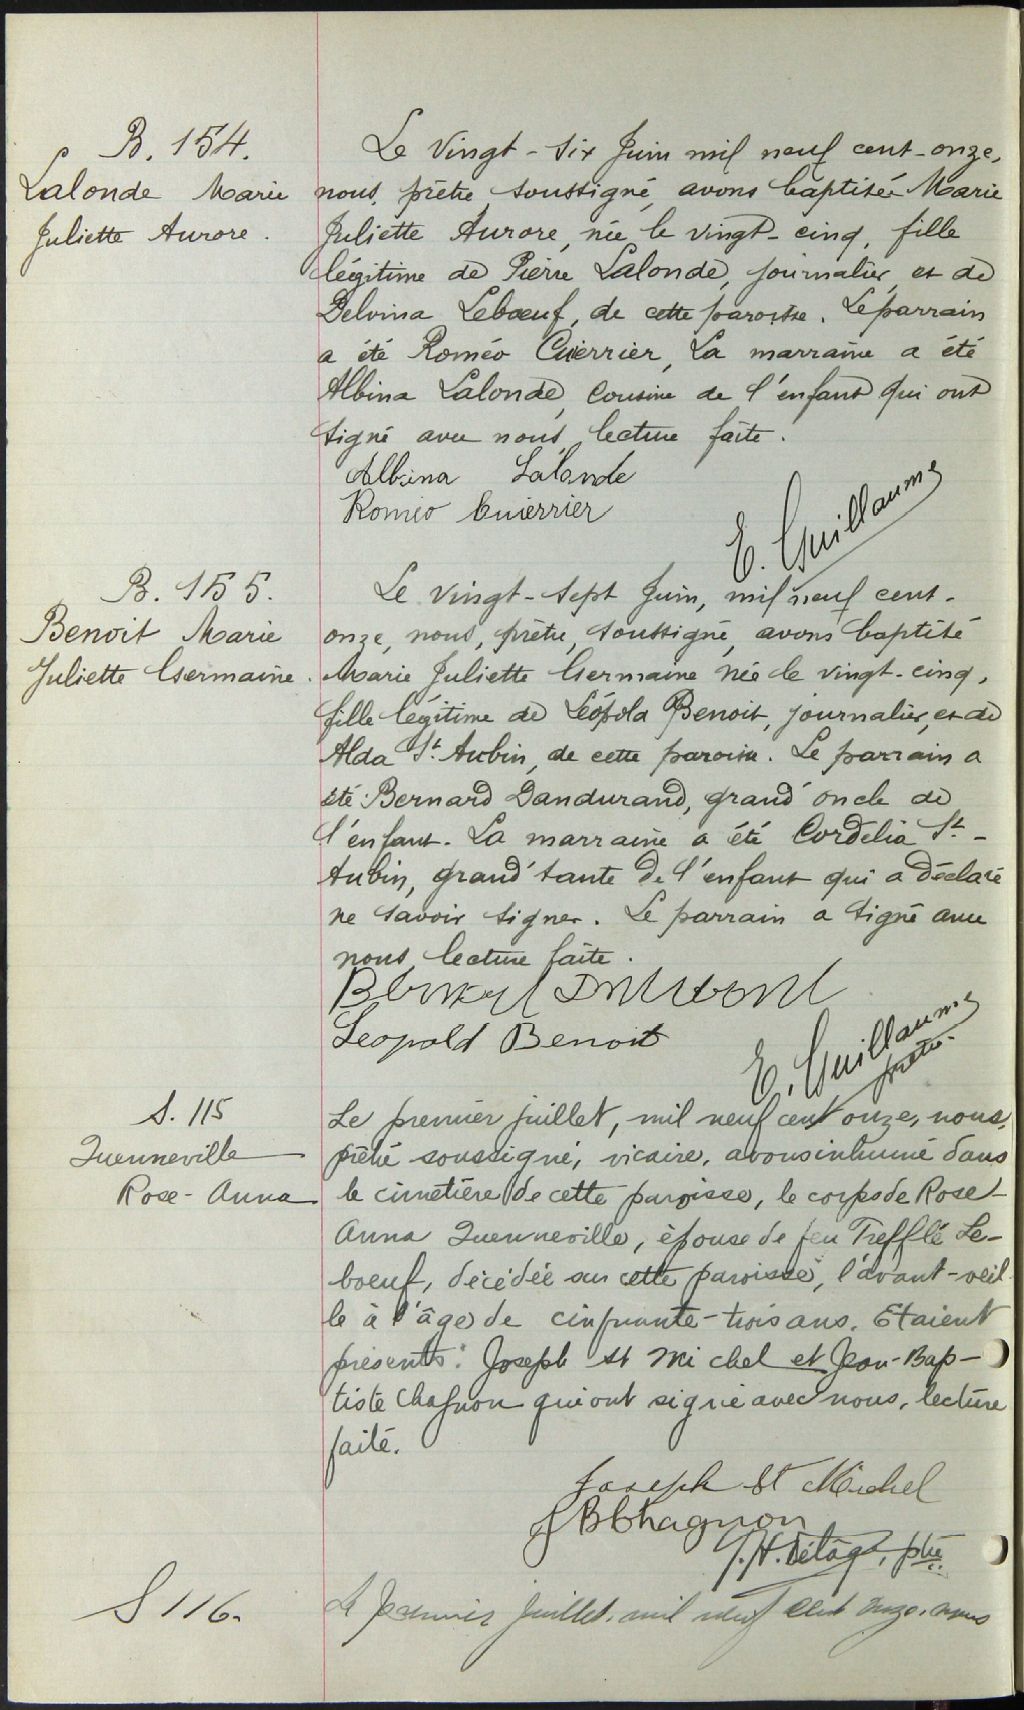 B. 154.
Lalonde Marie
Juliette Aurore.
Le vingt-six Juin mil neuf cent-onze,
nous, prêtre soussigné, avons baptisée Marie
Juliette Aurore, née le vingt-cinq, fille
légitime de Pierre Lalonde, journalier, et de
Delvina Leboeuf, de cette paroisse. Le parrain
a été Roméo Cuierrier, La marraine a été
Albina Lalonde, Cousine de l'enfant qui ont
signé avec nous, lecture faite.
Albina Lalonde
Romeo Cuierrier
E. Guillaume
B. 155.
Benoit Marie
Juliette Germaine.
Le vingt-sept Juin, mil neuf cent-
onze, nous, prêtre, soussigné, avons baptisé
Marie Juliette Germaine née le vingt-cinq,
fille légitime de Léopold Benoit, journalier, et de
Alda St. Aubin, de cette paroisse. Le parrain a
été Bernard Dandurand, grand'oncle de
l'enfant. La marraine a été Cordelia St.-
Aubin, grand'tante de l'enfant qui a déclaré
ne savoir signer. Le parrain a signé avec
nous, lecture faite.
Leopold Benoit
E. Guillaume
prêtre.
S. 115
Quenneville
Rose-Anna
Le premier juillet, mil neuf cent onze, nous,
prêtre soussigné, vicaire, avons inhumé dans
le cimetière de cette paroisse, le corps de Rose-
Anna Quenneville, épouse de feu Trefflé Le-
boeuf, décédée sur cette paroisse, l'avant-veil-
le à l'âge de cinquante-trois ans. Etaient
présents: Joseph St Michel et Jean-Bap-
tiste Chagnon qui ont signé avec nous, lecture
faite.
Joseph St Michel
J B Chagnon
J. H. ptre
S 116.
Le premier juillet, mil neuf cent onze, nous